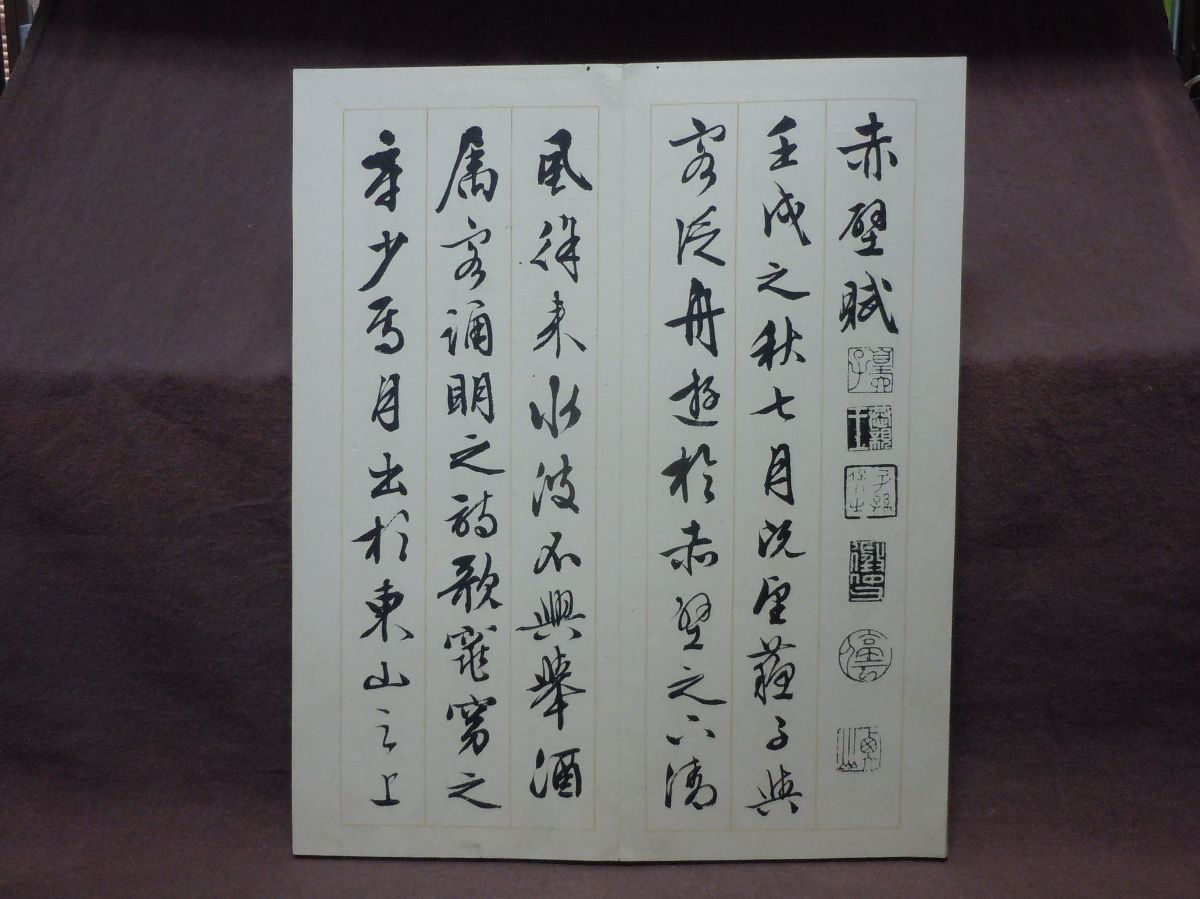 赤壁賦
壬戌之秋七月既望蘇子與
客泛舟遊於赤壁之下清
風徐来水波不興舉酒
属客誦明之詩歌窈窕之
章少焉月出於東山之上
子孫